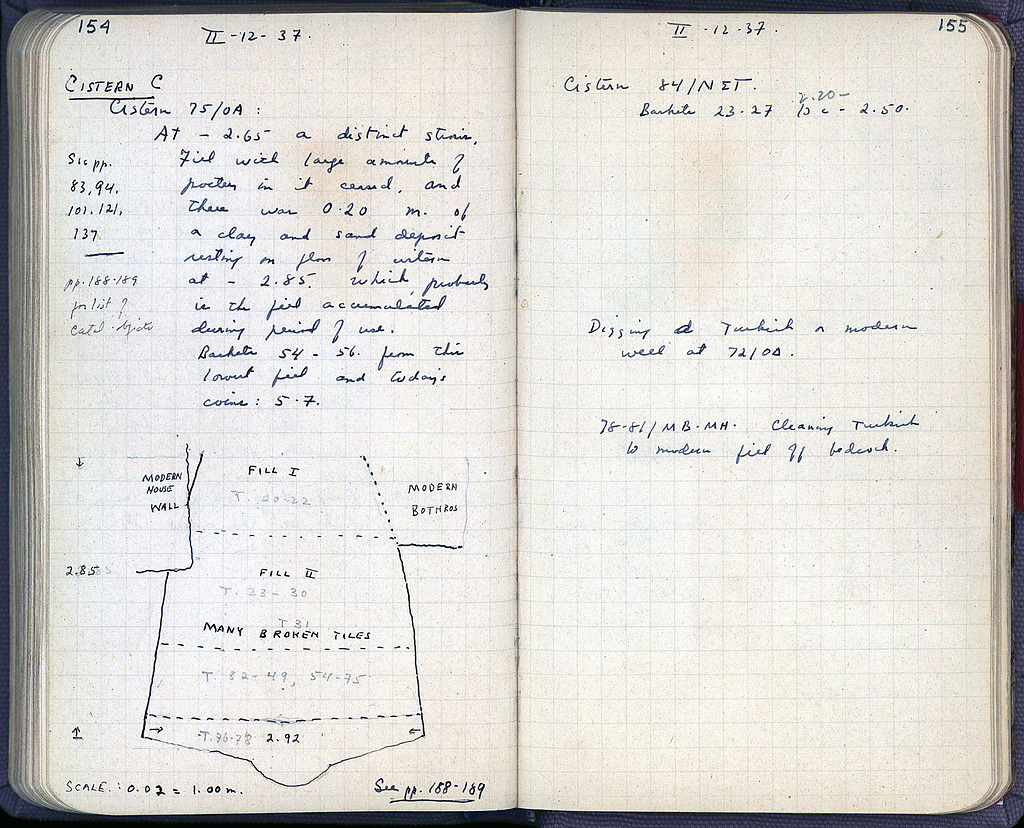 154
II-12-37.
CISTERN C
Cistern 75/OA:
At - 2.65 a distinct strosis,
See pp.
83,94.
101.121.
137
Fill with large amounts of
pottery in it ceased, and
there was 0.20 m. of
a clay and sand deposit
resting on floor of cistern
at - 2.85. which probably
is the fill accumulated
during period of use.
Baskets 54 - 56. from this
lowest fill and today's
coins: 5-7.
pp. 188-189
for list of
catal. objects
MODERN
HOUSE
WALL
FILL I
T. 20-22
MODERN
BOTHROS
2.85
FILL II
T. 23-30
T 31
MANY BROKEN TILES
T. 32-49, 54-75
T.76-78 2.92
SCALE.: 0.02 = 1.00 m.
See pp. 188-189
155
II-12-37.
Cistern 84/NET.
2.20-
Baskets 23-27 to - 2.50.
Digging Turkish or modern
well at 72/OA.
78-81/MB-MH. Cleaning Turkish
to modern fill off bedrock.